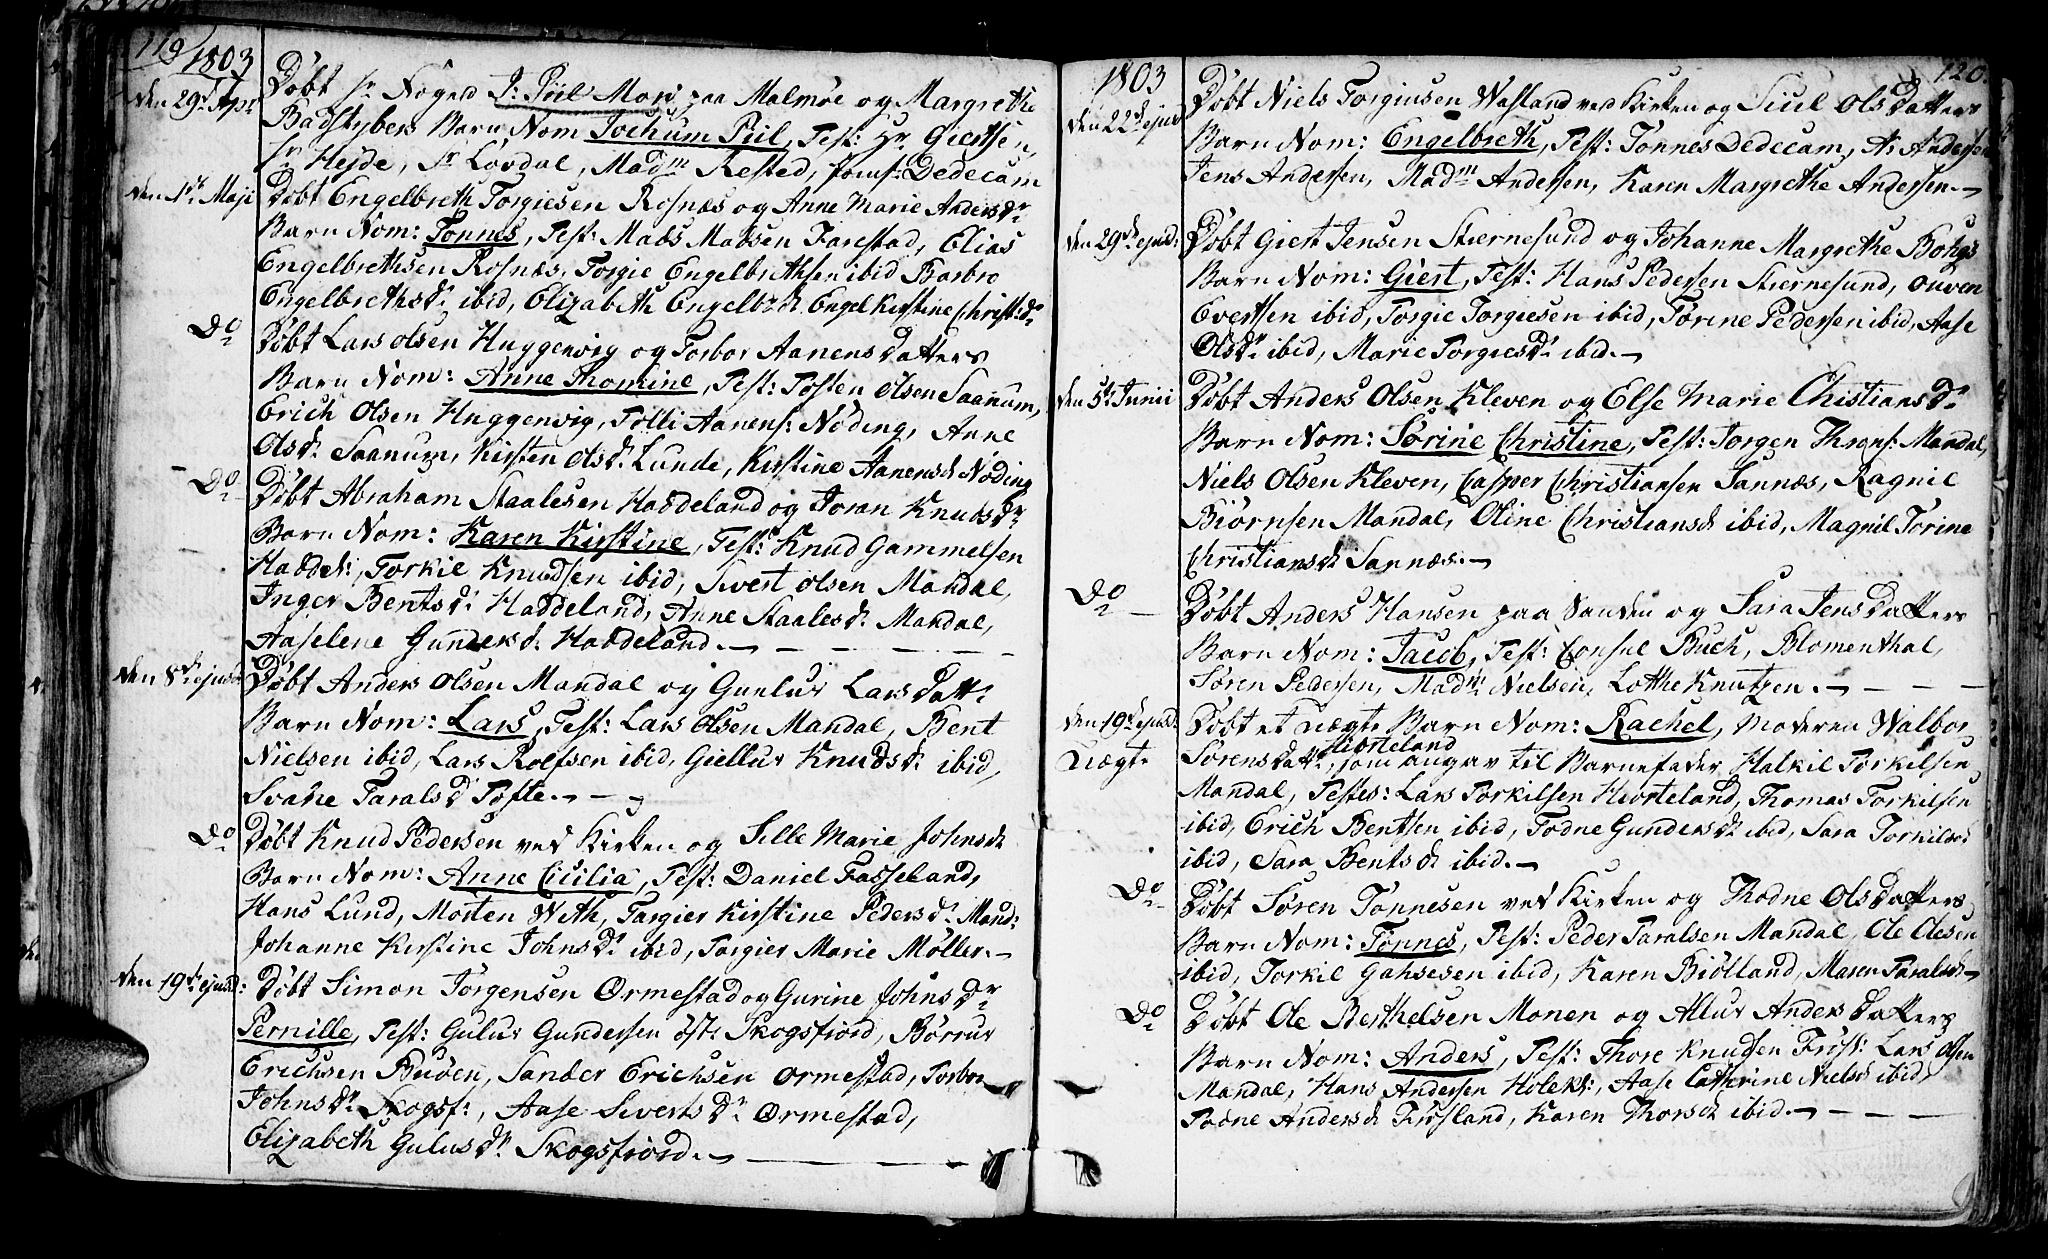 119
1803
den 29de Apr
Døbt Sr Foged J: Piil Mori paa Malmøe og Margrethe
Badstybers Barn Nom Jochum Piil, Test: Hr Giertsen,
Sr Heyde, Sr Løvdal, Madm Rested, Jomf: Dedecam
den 1ste Maji
Døbt Engelbreth Torgiesen Rosnæs og Anne Marie Andersdr
Barn Nom: Tønnes, Test: Mads Madsen Farestad, Elias
Engelbrethsen Rosnæs, Torgie Engelbrethsen ibid Barbro
Engelbrethsdr ibid, Elizabeth Engelbrd. Engel Kirstine Christ:dr
Do
Døbt Lars Olsen Huggenvig og Torbor Aanens Datters
Barn Nom: Anne Thomine, Test: Tosten Olsen Saanum,
Erich Olsen Huggenvig, Tolli Aanens: Nøding, Anne
Olsdr Saanum, Kirsten Olsdr Lunde, Kirstine Aanensd Nøding
Do
Døbt Abraham Staalesen Haddeland og Joran Knudsdr
Barn Nom: Karen Kirstine, Test: Knud Gammelsen
Haddel:, Torkil Knudsen ibid, Sivert Olsen Mandal,
Inger Bentsdr Haddeland, Anne Staalesdr Mandal,
Aaselene Gundersd. Haddeland.
den 8de ejusd
Døbt Anders Olsen Mandal og Gunlur Larsdatt:
Barn Nom: Lars, Test: Lars Olsen Mandal, Bent
Nielsen ibid, Lars Rolfsen ibid, Giellur Knudsdr ibid,
Svane Taralsd Tofte.
Do
Døbt Knud Pedersen ved Kirken og Sille Marie Johnsd
Barn Nom: Anne Cicilia, Test: Daniel Fasseland,
Hans Lund, Morten With, Targier Kirstine Pedersdr Mand:
Johanne Kirstine Johnsdr ibid, Targier Marie Møller.
den 19de ejusd:
Døbt Simon Jørgensen Ormestad og Gurine Johnsdr
Pernille, Test: Gulur Gundersen østr Skogsfiord, Børrur
Erichsen Buøen, Sander Erichsen Ormestad, Torbor
Johnsdr Skogsf:, Aase Sivertsdr Ormestad,
Elizabeth Gulusdr Skogsfiord.
120.
1803
den 22de ejusd
Døbt Niels Torgiusen Watland ved Kirken og Siul Ols Datters
Barn Nom: Engelbreth, Test: Tønnes Dedecam, A: Andersen
Jens Andersen, Madm Andersen, Karen Margrethe Andersen.
den 29de ejusd:
Døbt Giert Jensen Stiernesund og Johanne Margrethe Bohgs
Barn Nom: Giert, Test: Hans Pedersen Stiernesund, Ouven
Evertsen ibid, Torgie Torgiesen ibid, Torine Pedersen ibid, Aase
Olsdr ibid, Marie Torgiesdr ibid.
den 5te Junii
Døbt Anders Olsen Kleven og Else Marie Christiansdr
Barn Nom: Sørine Christine, Test: Jørgen Throns: Mandal,
Niels Olsen Kleven, Casper Christiansen Sannæs, Ragnil
Biørnsen Mandal, Oline Christiansd ibid, Magnil Torine
Christiansd Sannæs.
Do
Døbt Anders Hansen paa Sanden og Sara Jens Datters
Barn Nom: Jacob, Test: Consul Buch, Blomenthal,
Søren Pedersen, Madm Nielsen, Lotthe Knutzen.
den 19de ejusd:
Uægte
Døbt et uægte Barn Nom: Rachel, Moderen Walbor
Sørensdatt:, Hiorteland som angav til Barnefader Halkil Torkilsen
Mandal, Testes: Lars Torkilsen Hiorteland, Thomas Torkilsen
ibid, Erich Bentsen ibid, Todne Gundersdr ibid, Sara Torkilsd
ibid, Sara Bentsd ibid.
Do
Døbt Søren Tønnesen ved Kirken og Thodne Ols Datters
Barn Nom: Tønnes, Test: Peder Taralsen Mandal, Ole Olesen
ibid, Torkil Gahsesen ibid, Karen Biølland, Maren Taralsd.
Do
Døbt Ole Berthelsen Monen og Allur Anders Datters
Barn Nom: Anders, Test: Thore Knudsen Frøsl: Lars Olsen
Mandal, Hans Andersen Holeks:, Aase Catherine Nielsd ibid,
Todne Andersd Frøsland, Karen Thorsd ibid.